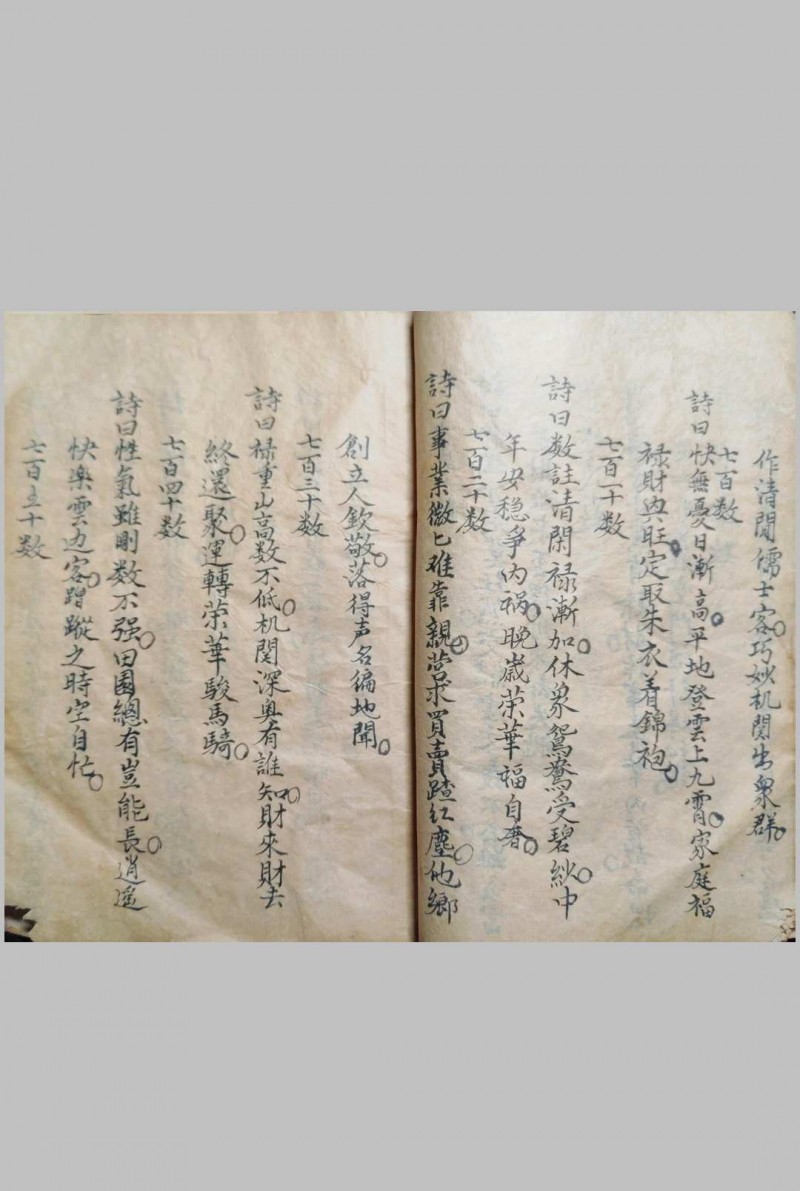 作清閒儒士客○巧妙机関出衆群○
七百数
詩曰快無憂日漸高○平地登雲上九霄○家庭福
禄財興旺○定取朱衣着錦袍○
七百一十数
詩曰数註清閑禄漸加○休象鴛鴦受碧紗○中
年安穏争内禍○晚歳荣華福自奢○
七百二十数
詩曰事業微匕难靠親○営求買賣蹅红塵○他鄉
創立人欽敬○落得声名徧地聞○
七百三十数
詩曰禄重山高数不低○机関深奥有誰知○財來財去
終還聚○運轉荣華駿馬騎○
七百四十数
詩曰性氣雖剛数不强○田園總有豈能長○逍遥
快楽雲边客○蹭蹤之時空自忙○
七百五十数